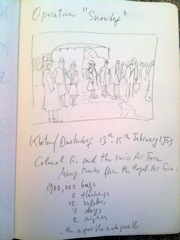 Operation "Snowdog"
Kloten/Dübendorf 13th-15th February 1953
Colonel G. and the Swiss Air Force
Many thanks from the Royal Air Force:
900,000 bags
3 Hastings
12 Valettas
3 days
2 nights
the impossible made possible